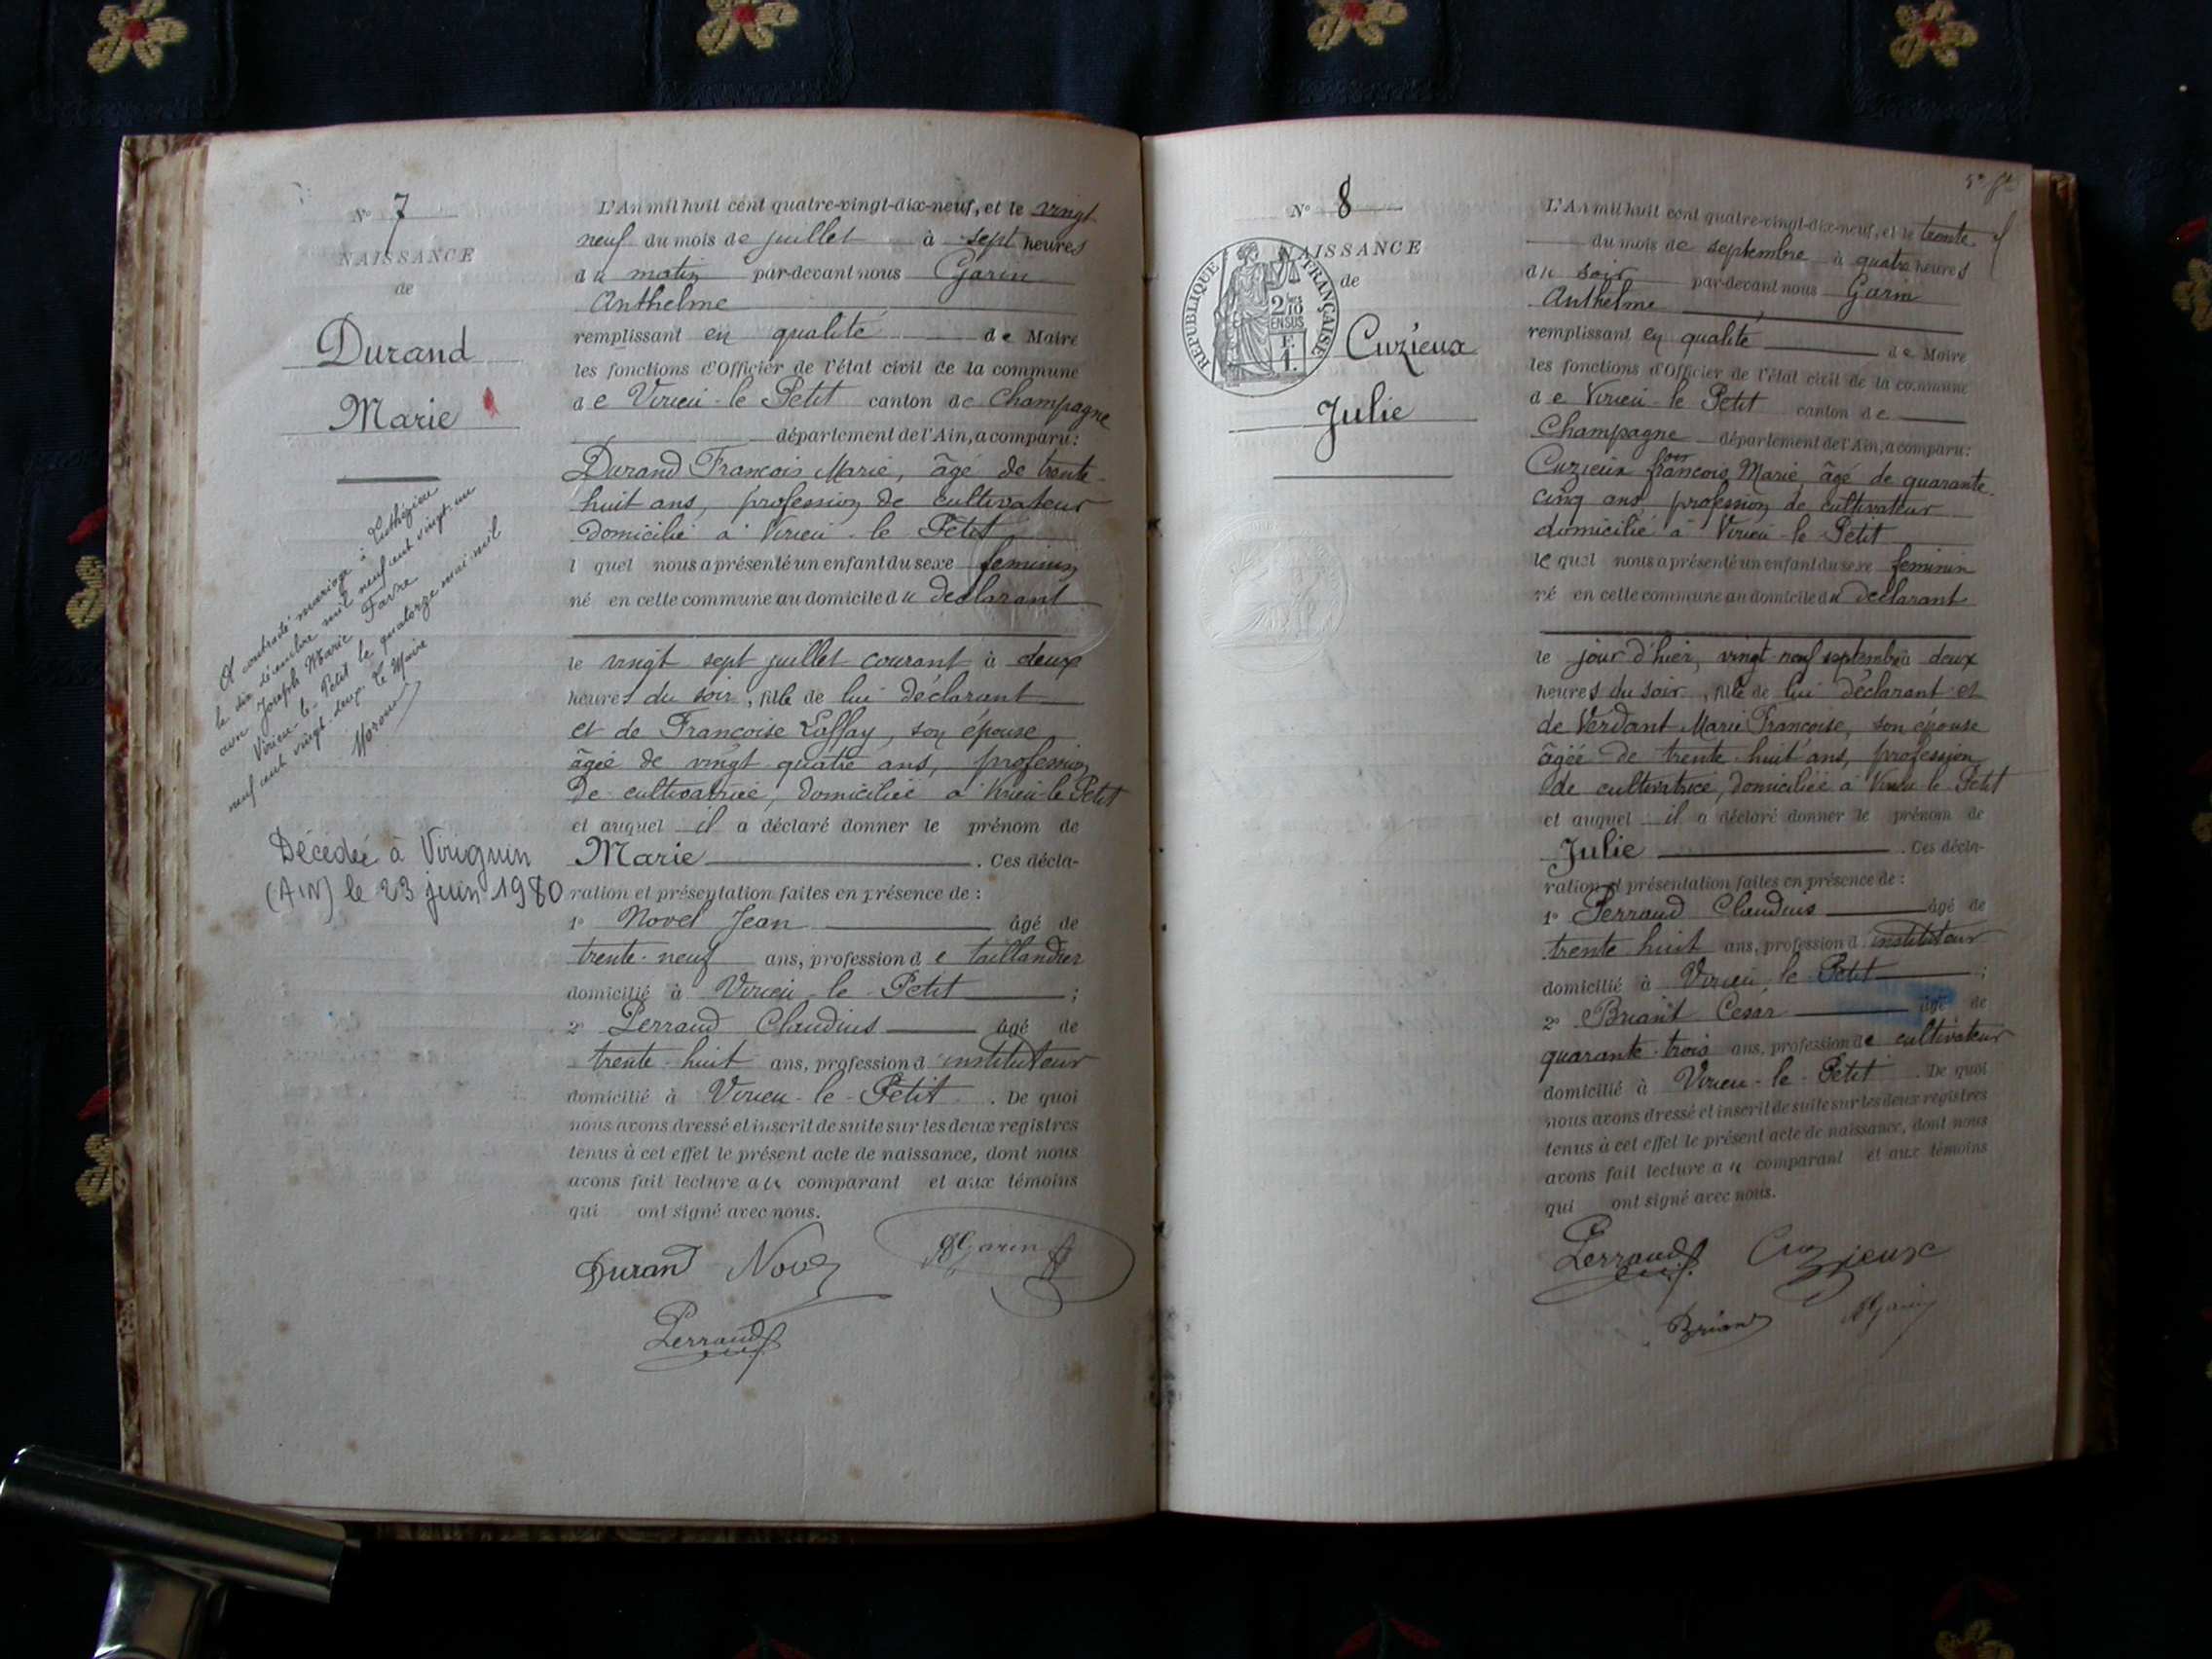 N° 7
NAISSANCE
de
Durand
Marie
A contracté mariage à Lothézieu
le dix décembre mil neuf cent vingt-un
avec Joseph Marie Favre
Virieu-le-Petit le quatorze mai mil
neuf cent vingt-deux. Le Maire
Décédée à Virignin
(AIN) le 23 juin 1980
L'An mil huit cent quatre-vingt-dix-neuf, et le vingt
neuf du mois de juillet à sept heures
du matin par-devant nous Garin
Anthelme
remplissant en qualité de Maire
les fonctions d'Officier de l'état civil de la commune
de Virieu-le Petit canton de Champagne
département de l'Ain, a comparu:
Durand François Marie, âgé de trente-
huit ans, profession de cultivateur
domicilié à Virieu-le Petit
l quel nous a présenté un enfant du sexe feminin
né en cette commune au domicile du déclarant
le vingt sept juillet courant à deux
heures du soir, fille de lui déclarant
et de Françoise Laffay, son épouse
âgée de vingt-quatre ans, profession
de cultivatrice, domiciliée à Virieu-le Petit
et auquel il a déclaré donner le prénom de
Marie . Ces décla-
ration et présentation faites en présence de :
1° Novel Jean âgé de
trente-neuf ans, profession de taillandier
domicilié à Virieu-le-Petit ;
2° Perraud Claudius âgé de
trente-huit ans, profession d instituteur
domicilié à Virieu-le-Petit . De quoi
nous avons dressé et inscrit de suite sur les deux registres
tenus à cet effet le présent acte de naissance, dont nous
avons fait lecture au comparant et aux témoins
qui ont signé avec nous.
Durand Novel AGarin
Perraud
N° 8
NAISSANCE
de
RÉPUBLIQUE FRANÇAISE
2/10
EN SUS
F.
1.
Cuzieux
Julie
L'An mil huit cent quatre-vingt-dix-neuf, et le trente
du mois de septembre à quatre heures
du soir par-devant nous Garin
Anthelme
remplissant en qualité de Maire
les fonctions d'Officier de l'état civil de la commune
de Virieu-le Petit canton de
Champagne département de l'Ain, a comparu:
Cuzieux François Marie âgé de quarante-
cinq ans profession de cultivateur
domicilié à Virieu-le-Petit
lequel nous a présenté un enfant du sexe feminin
né en cette commune au domicile du déclarant
le jour d'hier, vingt-neuf septembre à deux
heures du soir, fille de lui déclarant et
de Verdant Marie Françoise, son épouse
âgée de trente-huit ans, profession
de cultivatrice, domiciliée à Virieu-le Petit
et auquel il a déclaré donner le prénom de
Julie . Ces décla-
ration et présentation faites en présence de :
1° Perraud Claudius âgé de
trente huit ans, profession d instituteur
domicilié à Virieu-le-Petit ;
2° Briant Cesar âgé de
quarante-trois ans, profession de cultivateur
domicilié à Virieu-le-Petit . De quoi
nous avons dressé et inscrit de suite sur les deux registres
tenus à cet effet le présent acte de naissance, dont nous
avons fait lecture au comparant et aux témoins
qui ont signé avec nous.
Perraud Cuzieux
Briant AGarin